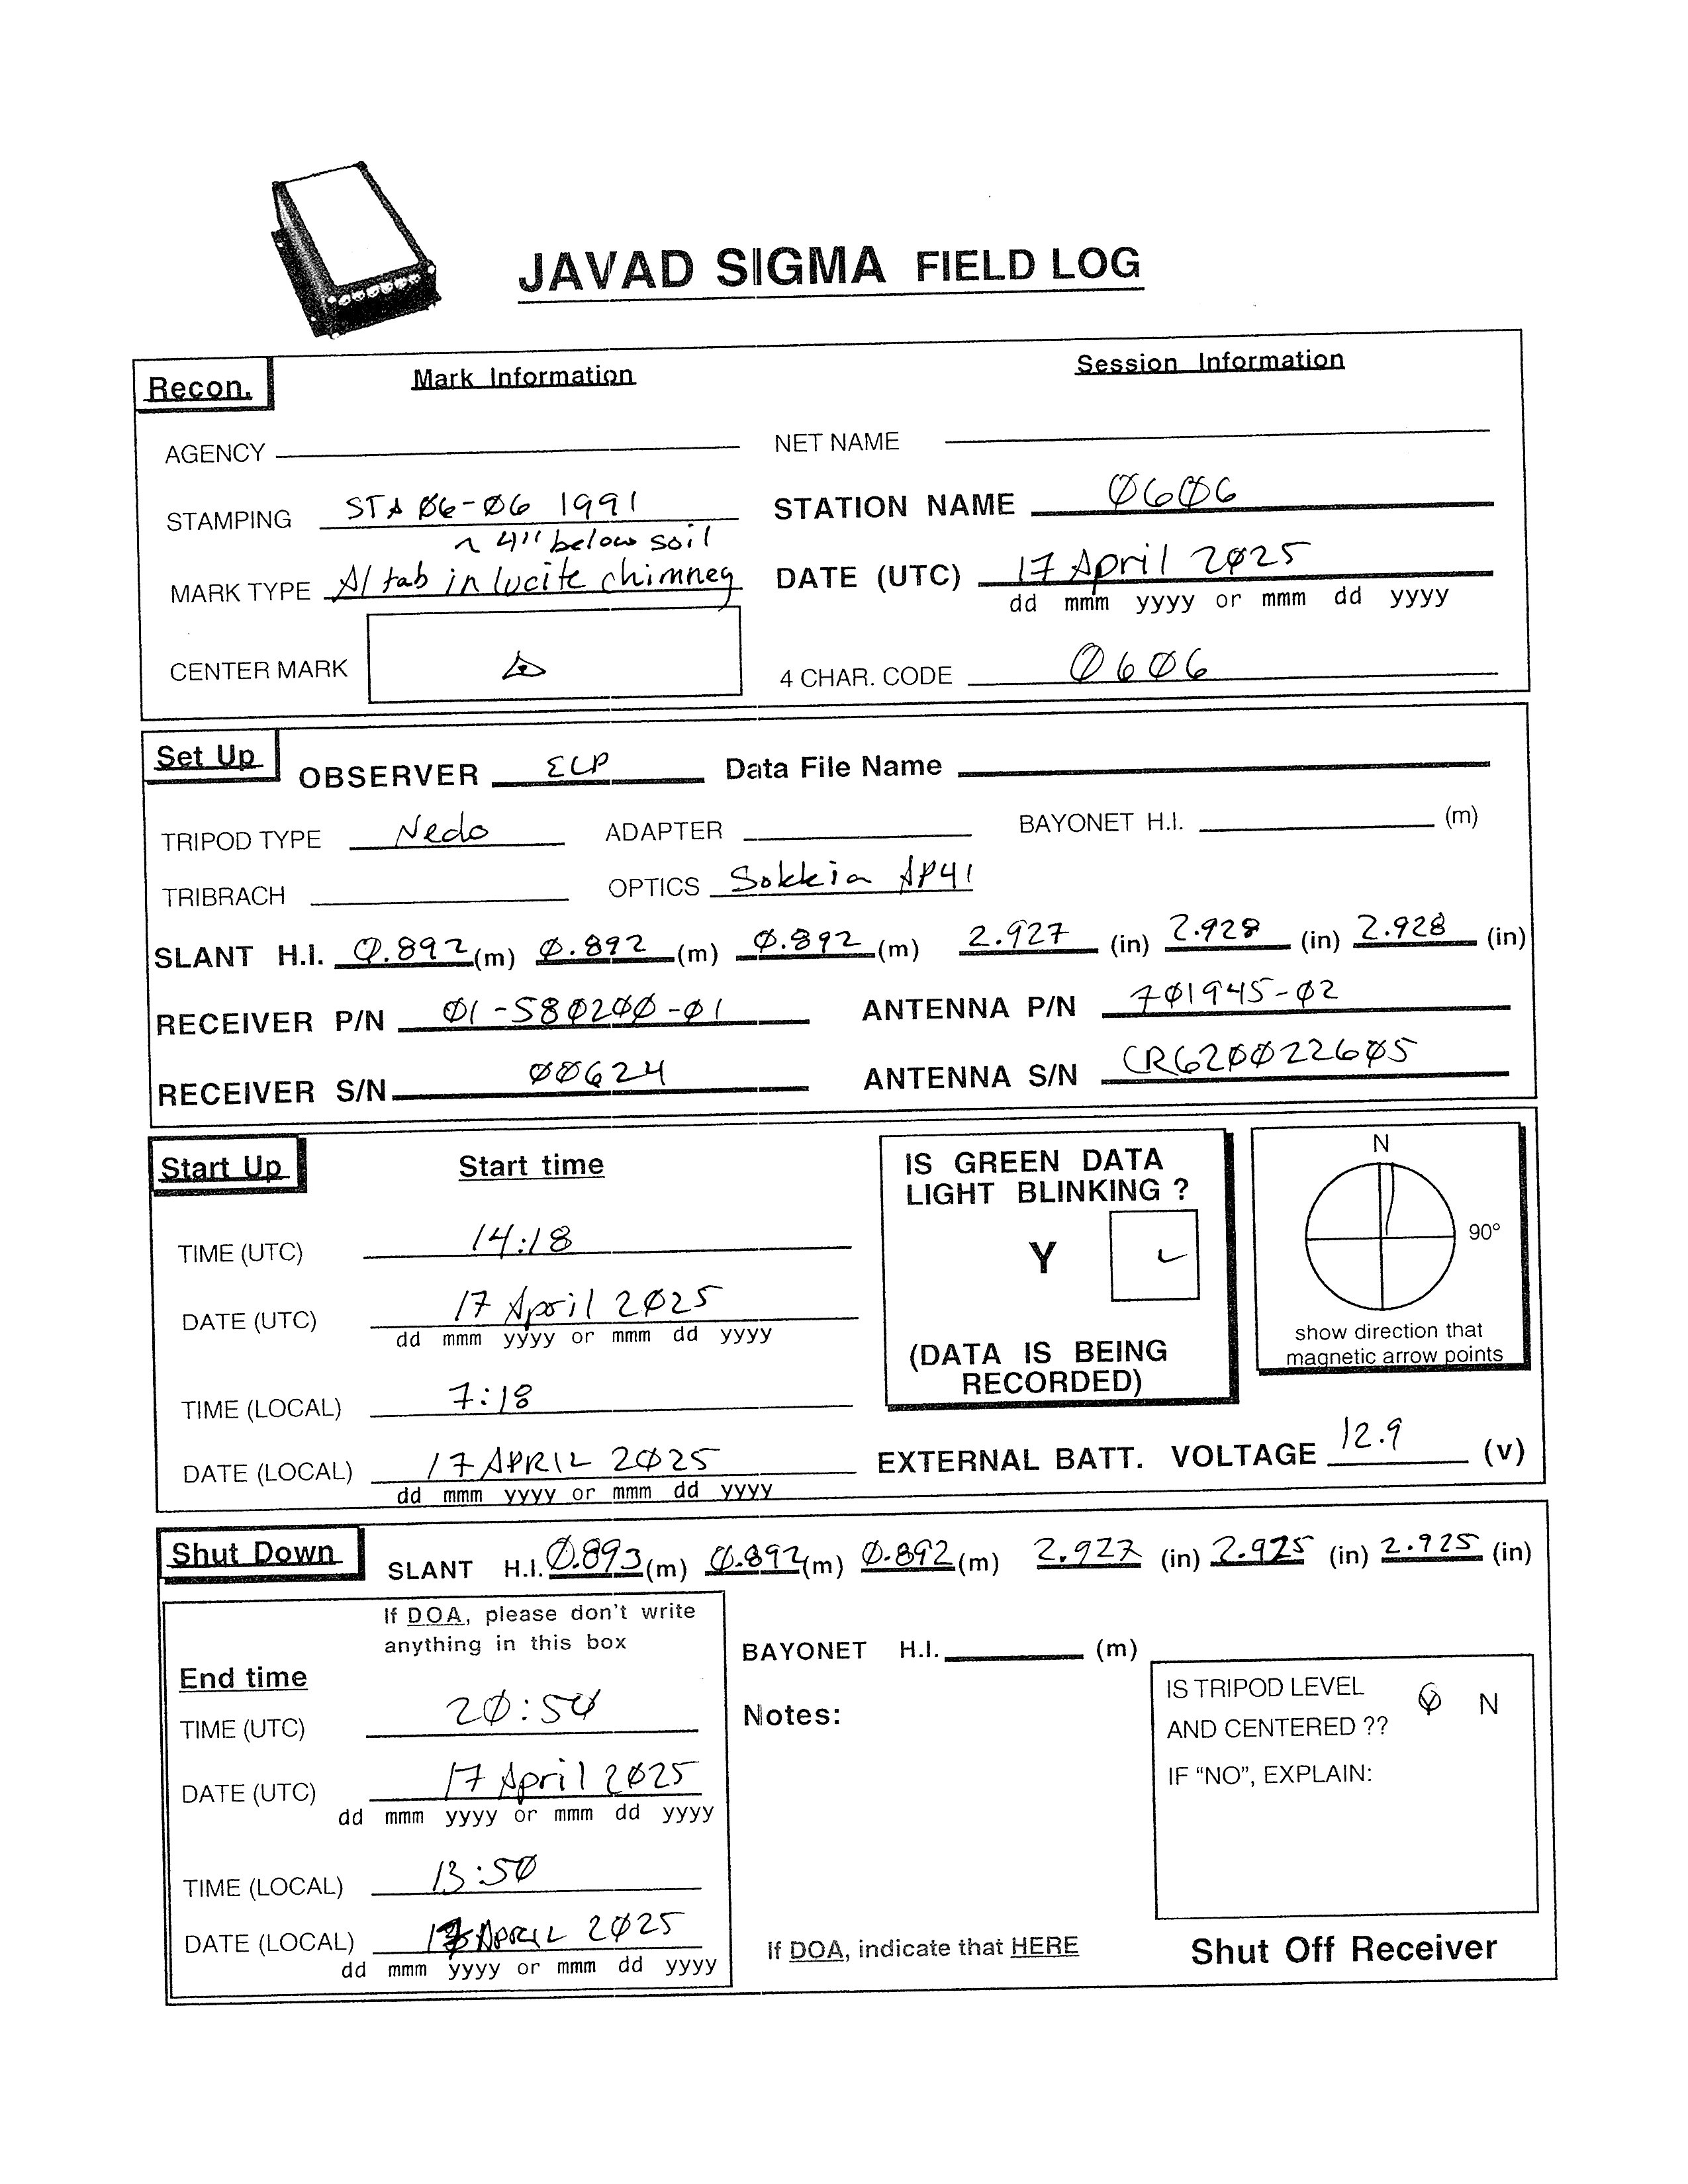 JAVAD SIGMA FIELD LOG
Recon.
Mark Information
Session Information
AGENCY
NET NAME
STAMPING STA 06-06 1991
STATION NAME 0606
~ 4" below soil
MARK TYPE Al tab in lucite chimney
DATE (UTC) 17 April 2025
dd mmm yyyy or mmm dd yyyy
CENTER MARK
4 CHAR. CODE 0606
Set Up
OBSERVER ELP
Data File Name
TRIPOD TYPE Nedo
ADAPTER
BAYONET H.I. (m)
TRIBRACH
OPTICS Sokkia AP41
SLANT H.I. 0.892 (m) 0.892 (m) 0.892 (m) 2.927 (in) 2.928 (in) 2.928 (in)
RECEIVER P/N 01-580200-01
ANTENNA P/N 701945-02
RECEIVER S/N 00624
ANTENNA S/N CR620022605
Start Up
Start time
TIME (UTC) 14:18
DATE (UTC) 17 April 2025
dd mmm yyyy or mmm dd yyyy
TIME (LOCAL) 7:18
DATE (LOCAL) 17 APRIL 2025
dd mmm yyyy or mmm dd yyyy
IS GREEN DATA
LIGHT BLINKING ?
Y ✓
(DATA IS BEING
RECORDED)
N
90°
show direction that
magnetic arrow points
EXTERNAL BATT. VOLTAGE 12.9 (v)
Shut Down
SLANT H.I. 0.893 (m) 0.892 (m) 0.892 (m) 2.927 (in) 2.925 (in) 2.925 (in)
If DOA, please don't write
anything in this box
End time
TIME (UTC) 20:50
DATE (UTC) 17 April 2025
dd mmm yyyy or mmm dd yyyy
TIME (LOCAL) 13:50
DATE (LOCAL) 17 APRIL 2025
dd mmm yyyy or mmm dd yyyy
BAYONET H.I. (m)
Notes:
IS TRIPOD LEVEL
AND CENTERED ?? Y N
IF "NO", EXPLAIN:
If DOA, indicate that HERE
Shut Off Receiver